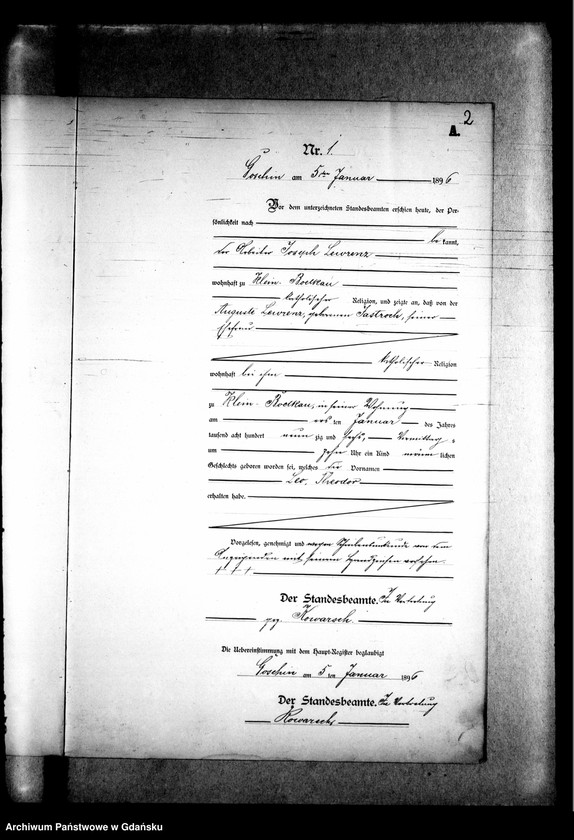 2
A.
Nr. 1.
Goschin am 5ten Januar 1896
Vor dem unterzeichneten Standesbeamten erschien heute, der Per-
sönlichkeit nach
be kannt,
der Arbeiter Joseph Lewrenz
wohnhaft zu Klein Boelkau
katholischer Religion, und zeigte an, daß von der
Auguste Lewrenz, geborenen Jastroch, seiner
Ehefrau
katholischer Religion
wohnhaft bei ihm
zu Klein-Boelkau, in seiner Wohnung
am ersten Januar des Jahres
tausend acht hundert neun zig und sechs, Vormittag s
um zehn Uhr ein Kind männ lichen
Geschlechts geboren worden sei, welches die Vornamen
Leo, Theodor
erhalten habe.
Vorgelesen, genehmigt und wegen Schreibensunkunde von dem
Anzeigenden mit seinem Handzeichen versehen.
+ + +
Der Standesbeamte. In Vertretung
gez. Kowarsch.
Die Uebereinstimmung mit dem Haupt-Register beglaubigt
Goschin am 5 ten Januar 1896
Der Standesbeamte. In Vertretung
Kowarsch
Archiwum Państwowe w Gdańsku